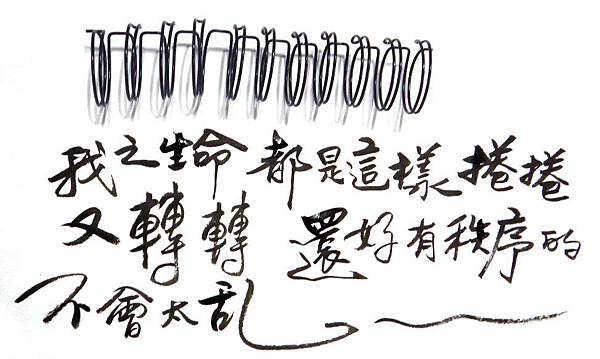 我之生命都是這樣捲捲
又轉轉 還好有秩序的
不會太乱